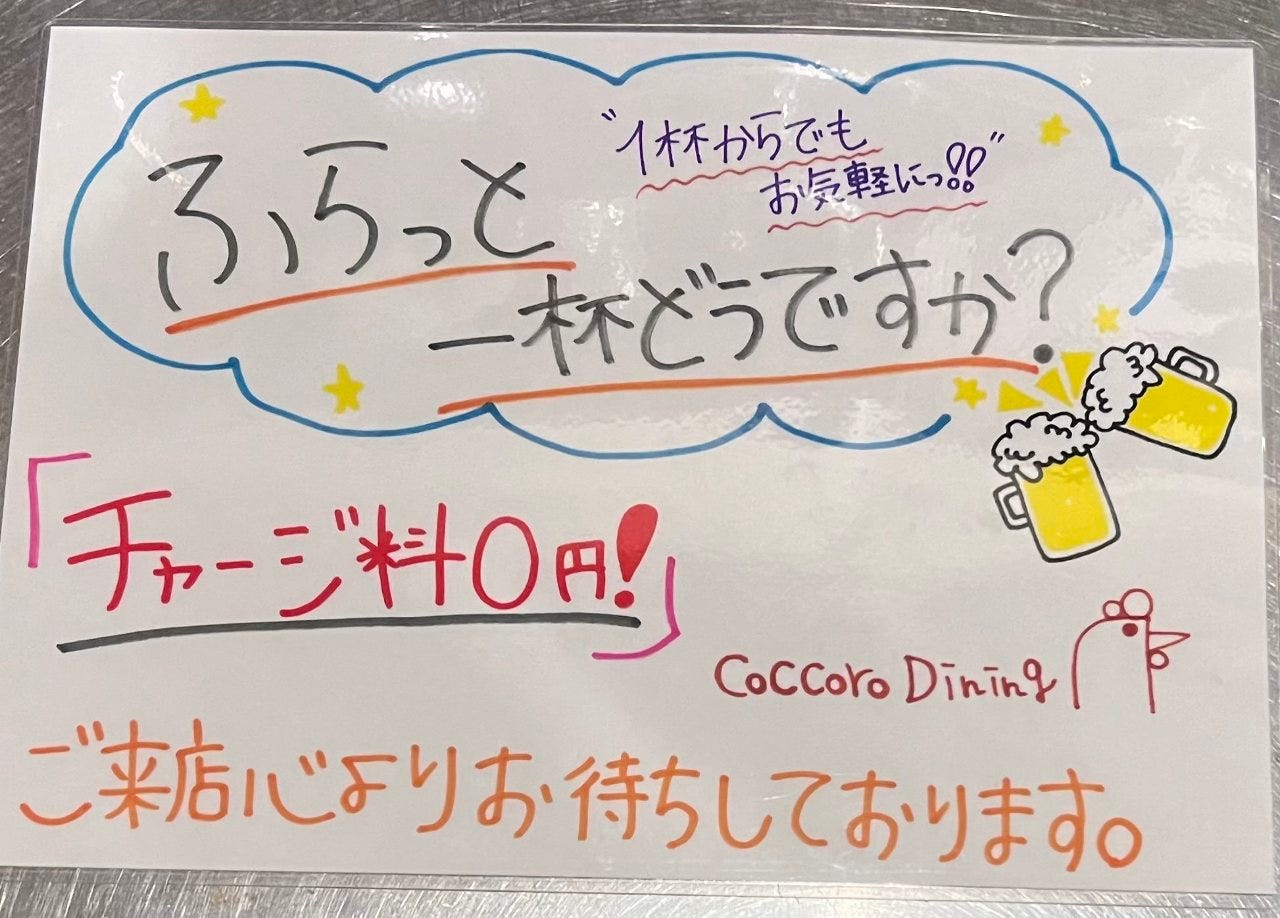 ふらっと
"1杯からでも
お気軽にっ!!"
一杯どうですか?
「チャージ料0円!」
CoCCoro Dining
ご来店心よりお待ちしております。